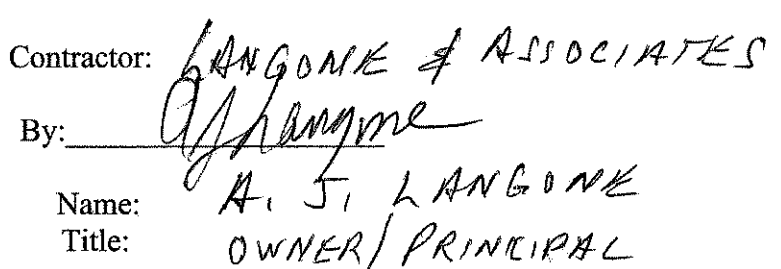 Contractor: LANGONE & ASSOCIATES
By: AJ Langone
Name: A. J. LANGONE
Title: OWNER/PRINCIPAL